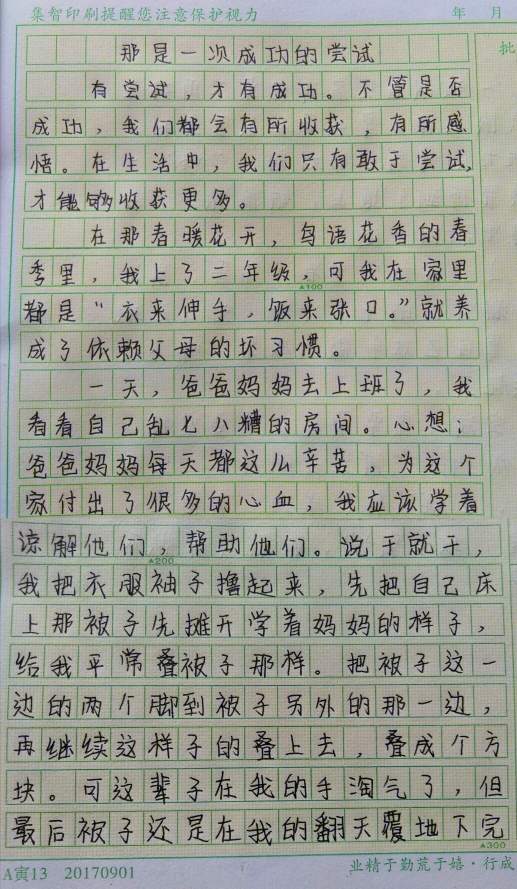 集智印刷提醒您注意保护视力 年 月
批
那是一次成功的尝试
有尝试，才有成功。不管是否
成功，我们都会有所收获，有所感
悟。在生活中，我们只有敢于尝试，
才能够收获更多。
在那春暖花开，鸟语花香的春
季里，我上了二年级，可我在家里
▲100
都是“衣来伸手，饭来张口。”就养
成了依赖父母的坏习惯。
一天，爸爸妈妈去上班了，我
看看自己乱七八糟的房间。心想：
爸爸妈妈每天都这么辛苦，为这个
家付出了很多的心血，我应该学着
谅解他们，帮助他们。说干就干，
▲200
我把衣服袖子撸起来，先把自己床
上那被子先摊开学着妈妈的样子，
给我平常叠被子那样。把被子这一
边的两个脚到被子另外的那一边，
再继续这样子的叠上去，叠成个方
块。可这辈子在我的手淘气了，但
最后被子还是在我的翻天覆地下完
▲300
A寅13 20170901 业精于勤荒于嬉·行成